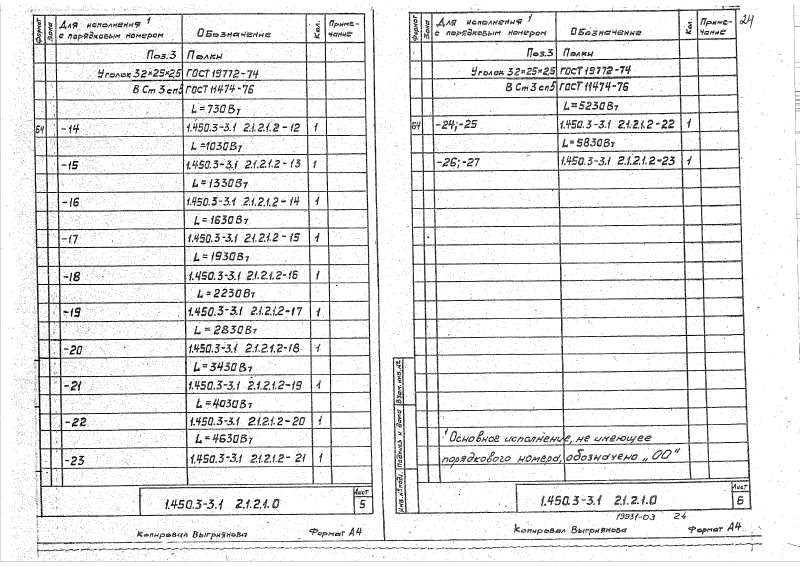 Формат
Зона
Для исполнения ¹ с порядковым номером
Обозначение
Кол.
Приме-
чание
Поз.3 Полки
Уголок 32×25×2,5 ГОСТ 19772-74
В Ст 3 сп5 ГОСТ 11474-76
L=730Вт
БЧ -14 1.450.3-3.1 2.1.2.1.2-12 1
L=1030Вт
-15 1.450.3-3.1 2.1.2.1.2-13 1
L=1330Вт
-16 1.450.3-3.1 2.1.2.1.2-14 1
L=1630Вт
-17 1.450.3-3.1 2.1.2.1.2-15 1
L=1930Вт
-18 1.450.3-3.1 2.1.2.1.2-16 1
L=2230Вт
-19 1.450.3-3.1 2.1.2.1.2-17 1
L=2830Вт
-20 1.450.3-3.1 2.1.2.1.2-18 1
L=3430Вт
-21 1.450.3-3.1 2.1.2.1.2-19 1
L=4030Вт
-22 1.450.3-3.1 2.1.2.1.2-20 1
L=4630Вт
-23 1.450.3-3.1 2.1.2.1.2-21 1
1.450.3-3.1 2.1.2.1.0
Лист
5
Копировал Выгриянова Формат А4
24
Формат
Зона
Для исполнения ¹ с порядковым номером
Обозначение
Кол.
Приме-
чание
Поз.3 Полки
Уголок 32×25×2,5 ГОСТ 19772-74
В Ст 3 сп5 ГОСТ 11474-76
L=5230Вт
БЧ -24;-25 1.450.3-3.1 2.1.2.1.2-22 1
L=5830Вт
-26;-27 1.450.3-3.1 2.1.2.1.2-23 1
¹ Основное исполнение, не имеющее
порядкового номера, обозначено „00"
Инв.№ подл. Подпись и дата Взам.инв.№
1.450.3-3.1 2.1.2.1.0
Лист
6
19931-03 24
Копировал Выгриянова Формат А4